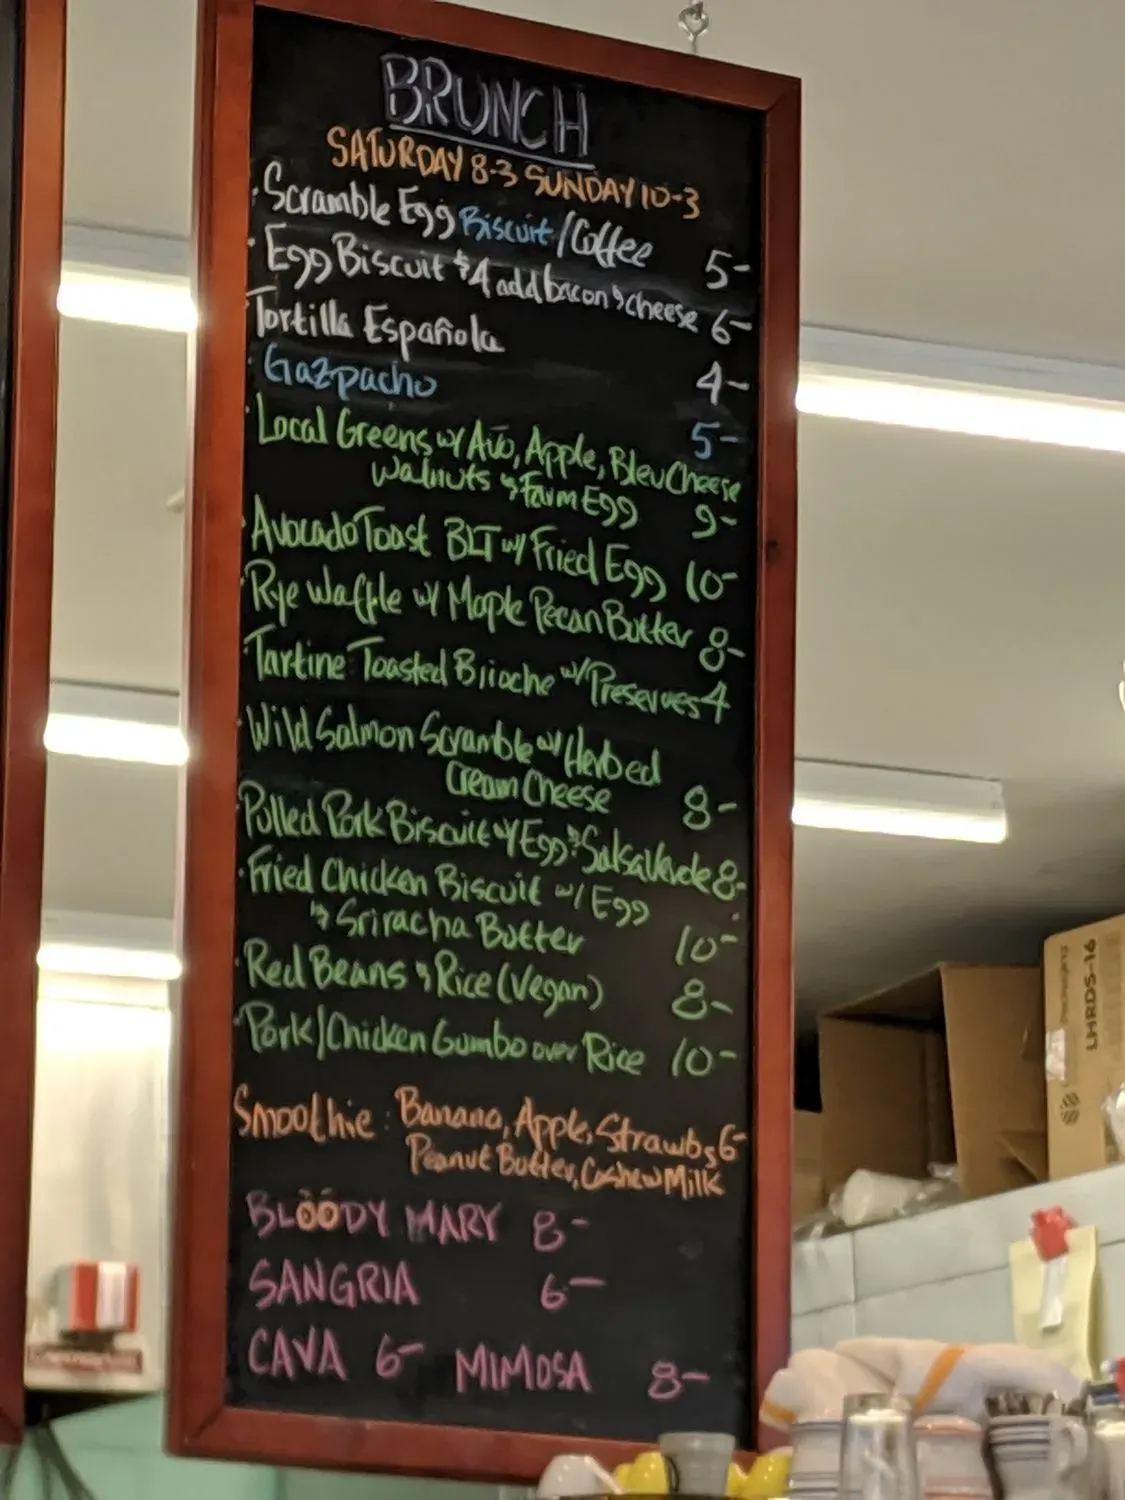 BRUNCH
SATURDAY 8-3 SUNDAY 10-3
· Scramble Egg Biscuit/Coffee 5-
· Egg Biscuit $4 add bacon & cheese 6-
Tortilla Española 4-
· Gazpacho 5-
· Local Greens w/ Avo, Apple, Bleu Cheese
Walnuts & Farm Egg 9-
· Avocado Toast BLT w/ Fried Egg 10-
· Rye Waffle w/ Maple Pecan Butter 8-
· Tartine: Toasted Brioche w/ Preserves 4
· Wild Salmon Scramble w/ Herbed
Cream Cheese 8-
· Pulled Pork Biscuit w/ Egg & Salsa Verde 8-
· Fried Chicken Biscuit w/ Egg
& Sriracha Butter 10-
· Red Beans & Rice (Vegan) 8-
· Pork/Chicken Gumbo over Rice 10-
Smoothie: Banana, Apple, Strawbs 6-
Peanut Butter, Cashew Milk
BLOODY MARY 8-
SANGRIA 6-
CAVA 6- MIMOSA 8-
Packaging
LHRDS-16